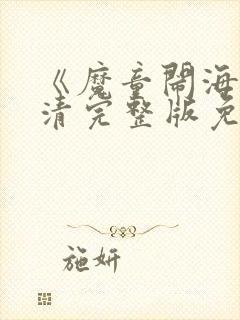 《魔童鬧海
清完整版免
施妍